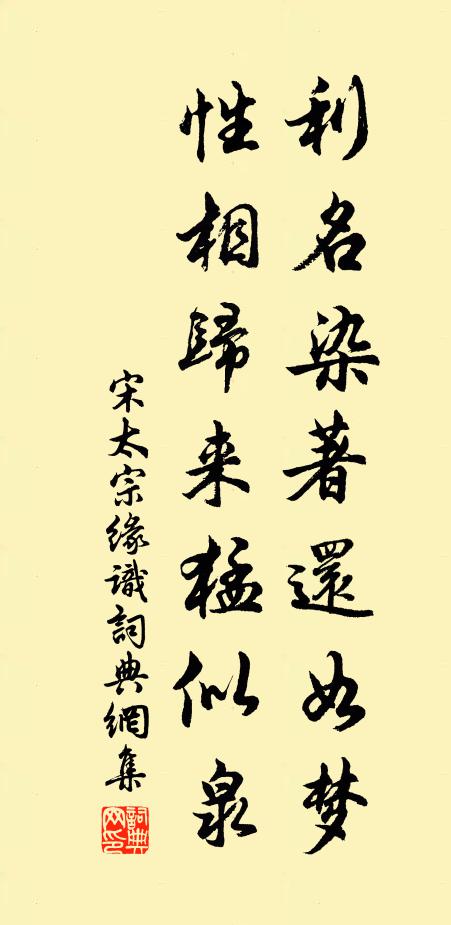 利名染著還如梦
性相歸来猛似泉
宋太宗緣識詞典網集
詞典網印